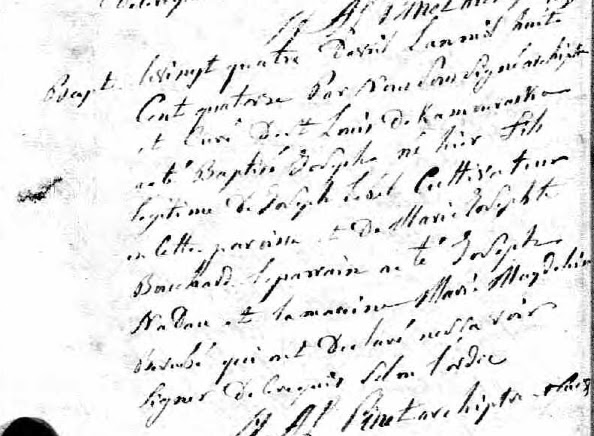 Bapt. Le vingt quatre Davril L'an mil huit
Cent quatorze Par Nous Sous Signé archiptre
et Curé De St Louis De Kamouraska
a eté Baptisé Joseph né hier fils
legitime De Joseph Cultivateur
en cette paroisse et De Marie Josephte
Bouchard. le parrain a eté Joseph
Nadau et la marraine Marie Magdeleine
qui ont Declaré ne savoir
Signer De ce requis Selon l'ordce
Pinet archiptre